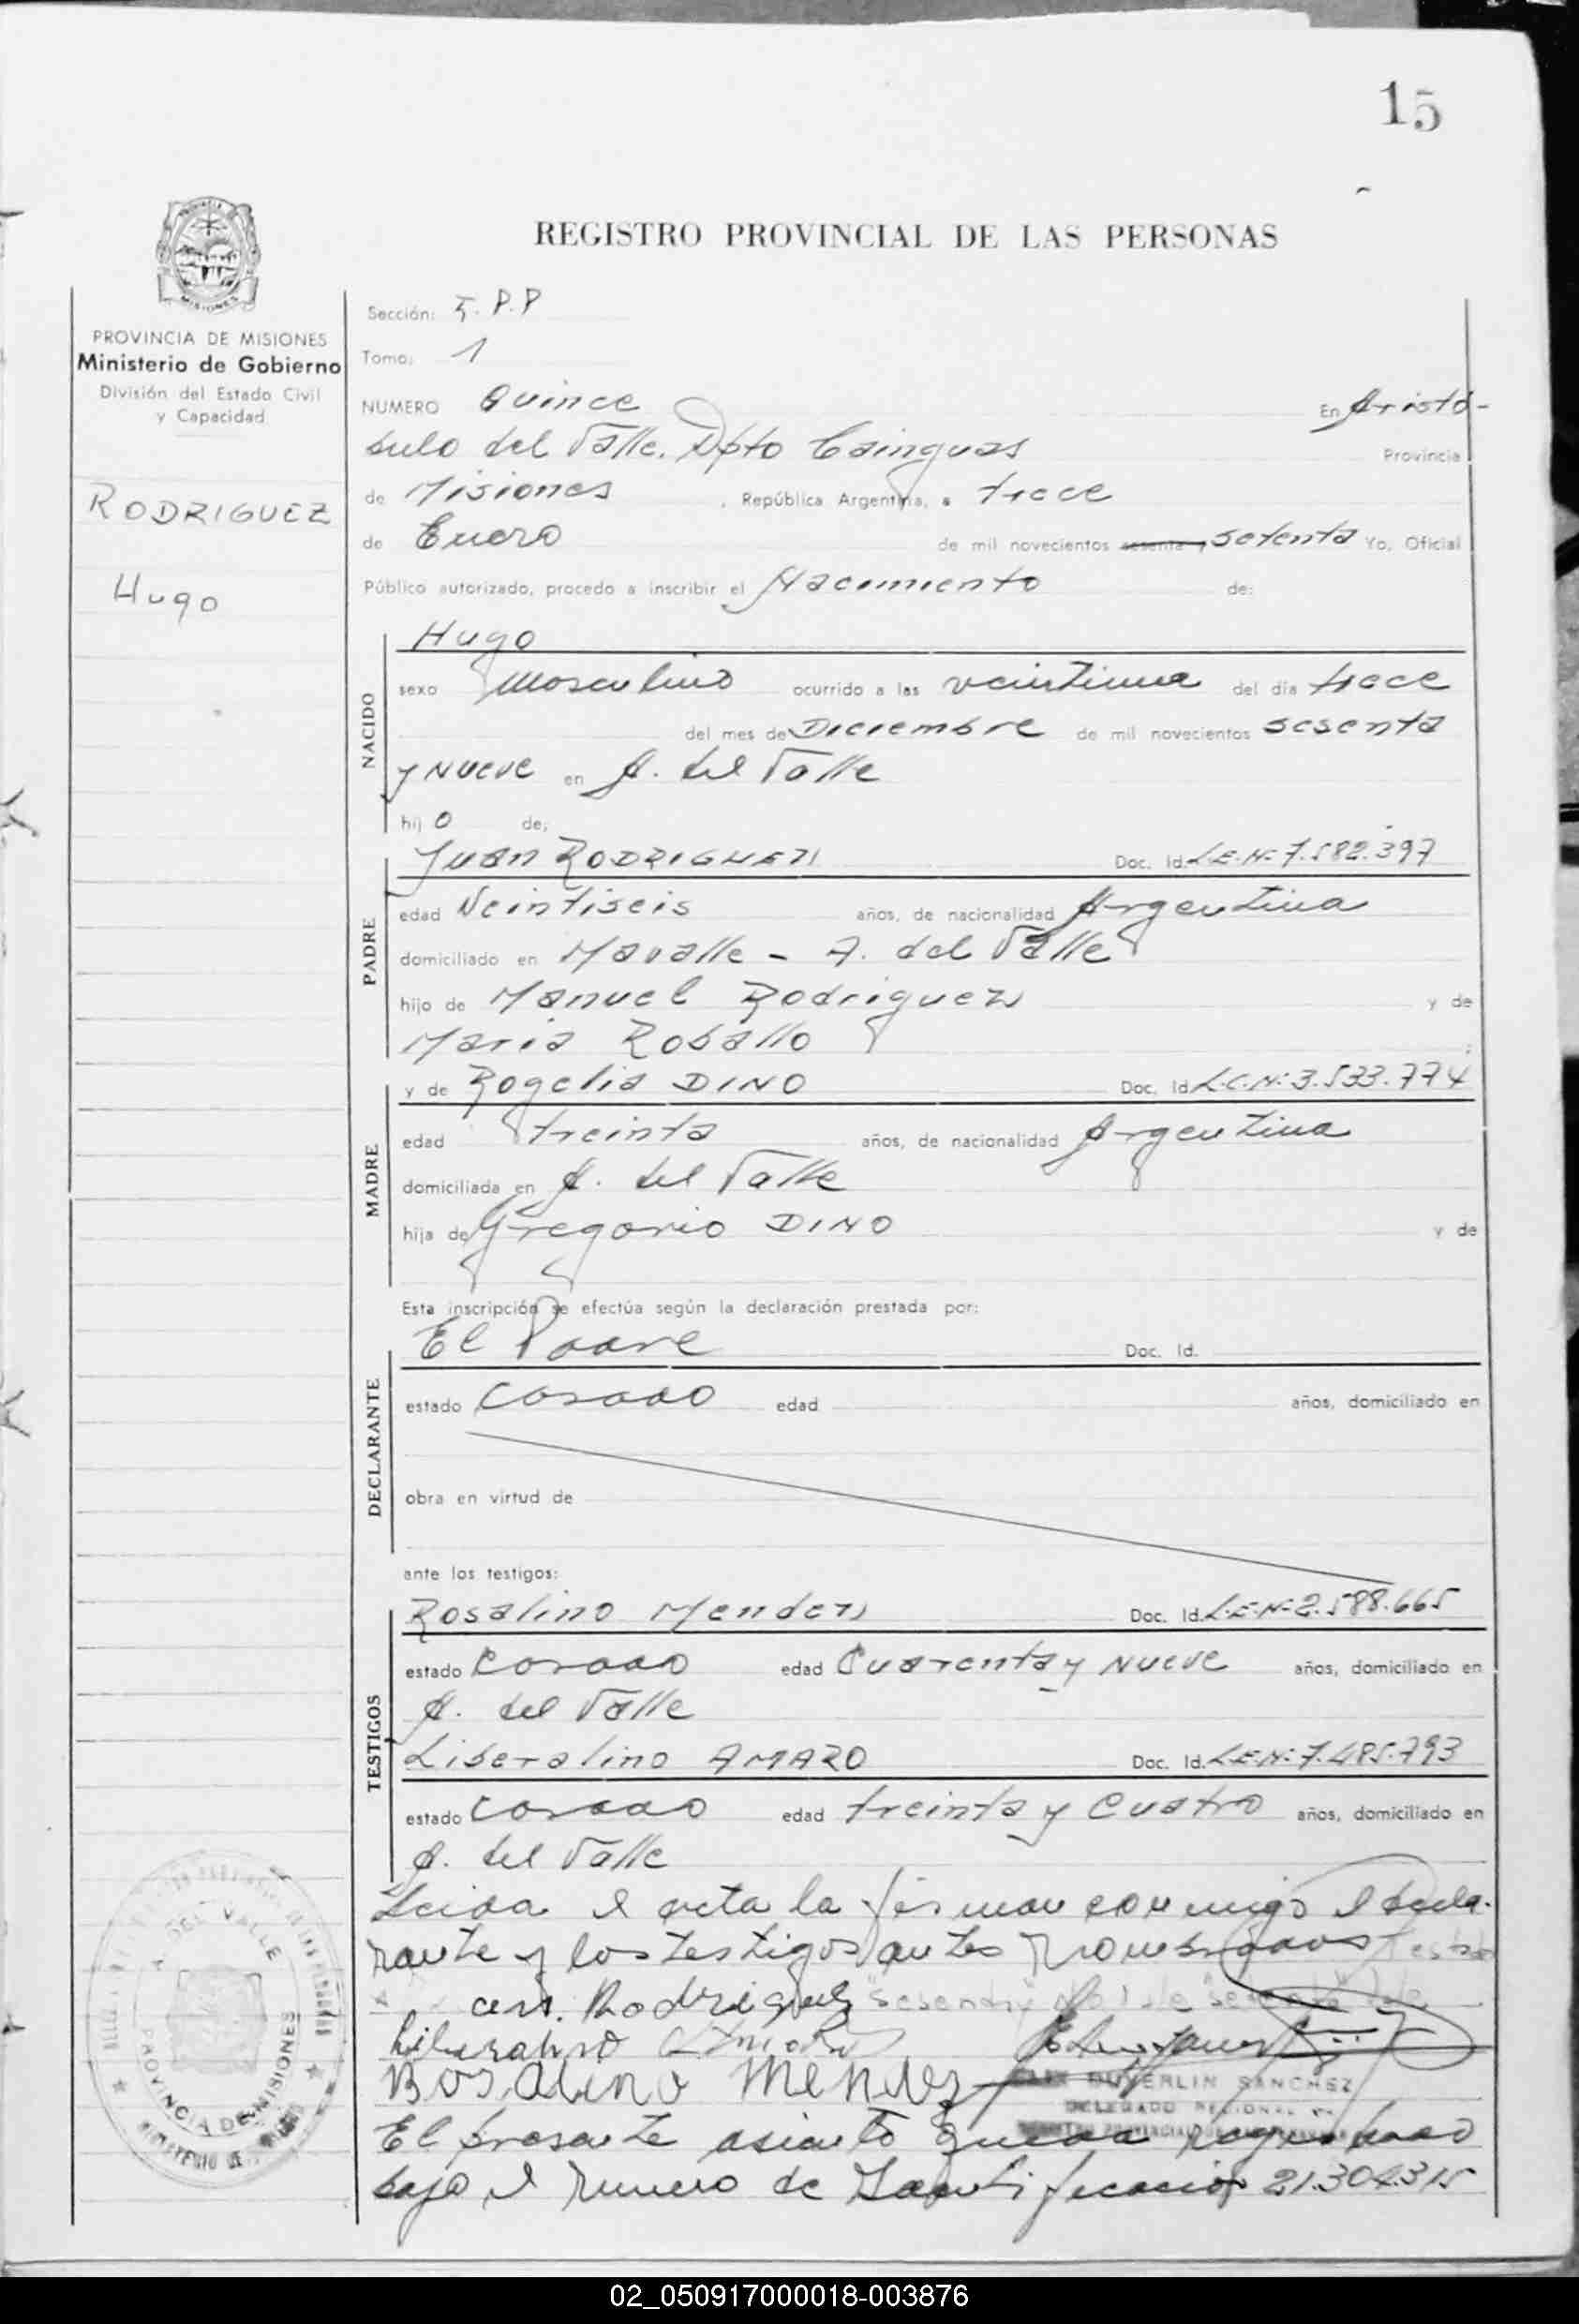 15
REGISTRO PROVINCIAL DE LAS PERSONAS
MISIONES
PROVINCIA DE MISIONES
Ministerio de Gobierno
División del Estado Civil
y Capacidad
RODRIGUEZ
Hugo
Sección: P.P
Tomo: 1
NUMERO Quince En Aristó-
bulo del Valle. Dpto Cainguas Provincia
de Misiones, República Argentina, a trece
de Enero de mil novecientos sesenta y setenta Yo, Oficial
Público autorizado, procedo a inscribir el Nacimiento de:
NACIDO
Hugo
sexo Masculino ocurrido a las veintiuna del día trece
del mes de Diciembre de mil novecientos sesenta
y Nueve en A. del Valle
hijo de;
PADRE
Juan RODRIGUEZ Doc. Id. L.E.Nº 7.582.397
edad Veintiseis años, de nacionalidad Argentina
domiciliado en Mavalle - A. del Valle
hijo de Manuel Rodriguez y de
Maria Roballo ;
MADRE
y de Rogelia DINO Doc. Id. L.C.Nº 3.533.774
edad treinta años, de nacionalidad Argentina
domiciliada en A. del Valle
hija de Gregorio DINO y de
Esta inscripción se efectúa según la declaración prestada por:
DECLARANTE
El Padre Doc. Id.
estado Casado edad años, domiciliado en
obra en virtud de
ante los testigos:
TESTIGOS
Rosalino Mendez Doc. Id. L.E.Nº 2.588.665
estado Casado edad Cuarenta y Nueve años, domiciliado en
A. del Valle
Liberalino AMARO Doc. Id. L.E.Nº 7.485.793
estado Casado edad treinta y Cuatro años, domiciliado en
A. del Valle
Leida el acta la firman conmigo el decla-
rante y los testigos antes nombrados
Rodriguez "sesenta y"
Rosalino Mendez
DUVERLIN SANCHEZ
DELEGADO REGIONAL
El presente asiento queda registrado
bajo el Numero de Identificacion 21.304.315
A. DEL VALLE
PROVINCIA DE MISIONES
02_050917000018-003876